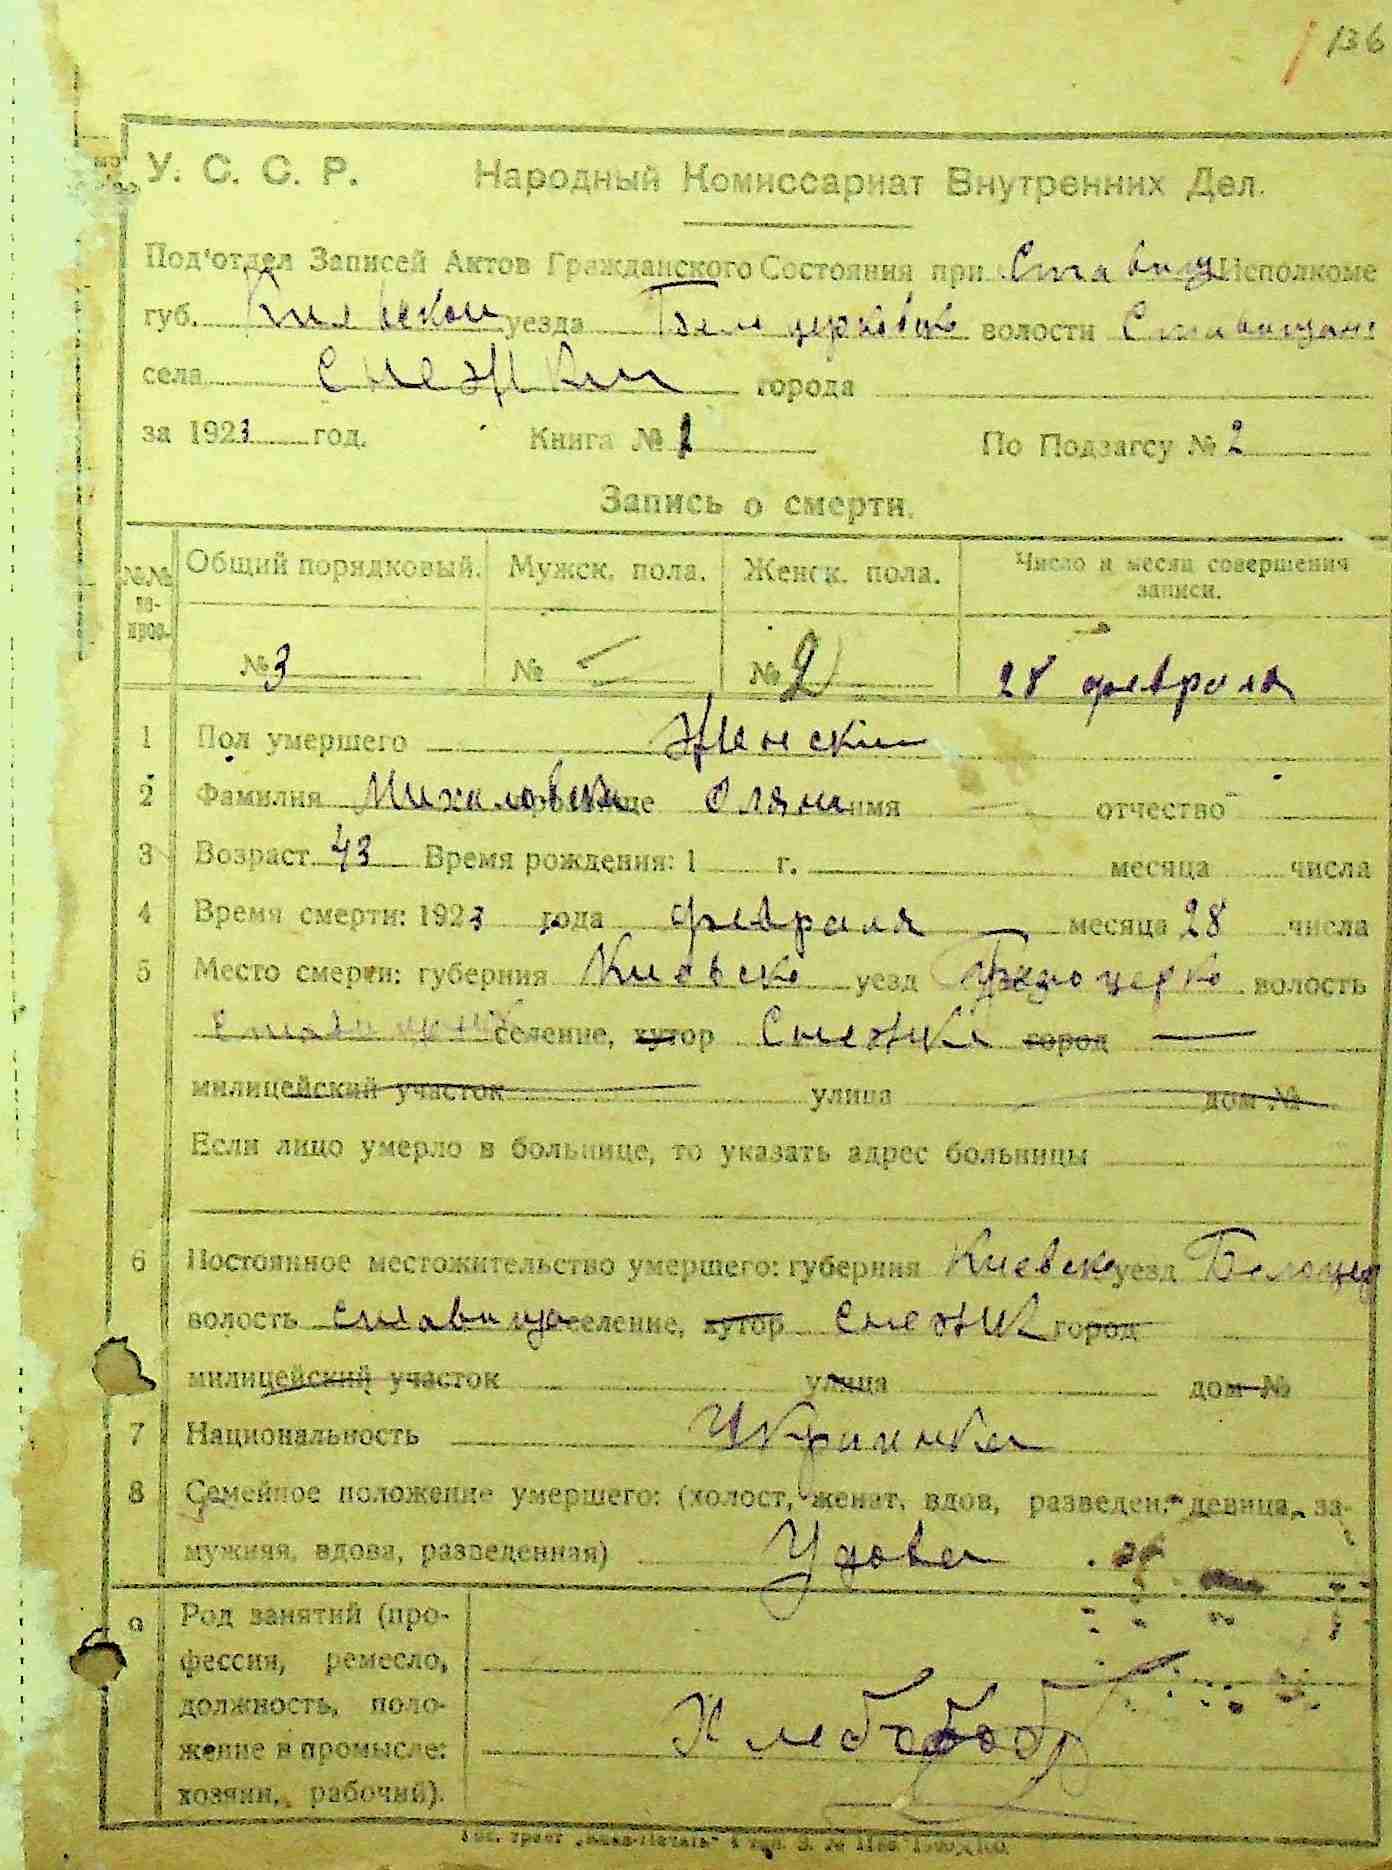 136
У. С. С. Р. Народный Комиссариат Внутренних Дел.
Под'отдел Записей Актов Гражданского Состояния при Ставищ Исполкоме
губ. Киевской уезда Белоцерковск волости Ставищан
села Снежки города
за 1923 год. Книга № 1 По Подзагсу № 2
Запись о смерти.
№№ вопрос. Общий порядковый. Мужск. пола. Женск. пола. Число и месяц совершения записи.
№ 3 № — № 2 28 февраля
1 Пол умершего Женский
2 Фамилия Михаловска Оляна имя — отчество
3 Возраст 43 Время рождения: 1 г. месяца числа
4 Время смерти: 1923 года февраля месяца 28 числа
5 Место смерти: губерния Киевско уезд Белоцерко волость
селение, хутор Снежки город —
милицейский участок улица дом №
Если лицо умерло в больнице, то указать адрес больницы
6 Постоянное местожительство умершего: губерния Киевско уезд Белоцер
волость Ставища селение, хутор Снежки город
милицейский участок улица дом №
7 Национальность Украинка
8 Семейное положение умершего: (холост, женат, вдов, разведен, девица, за-
мужняя, вдова, разведенная) Удова
9 Род занятий (про-
фессия, ремесло,
должность, поло-
жение в промысле:
хозяин, рабочий).
Хлебороб